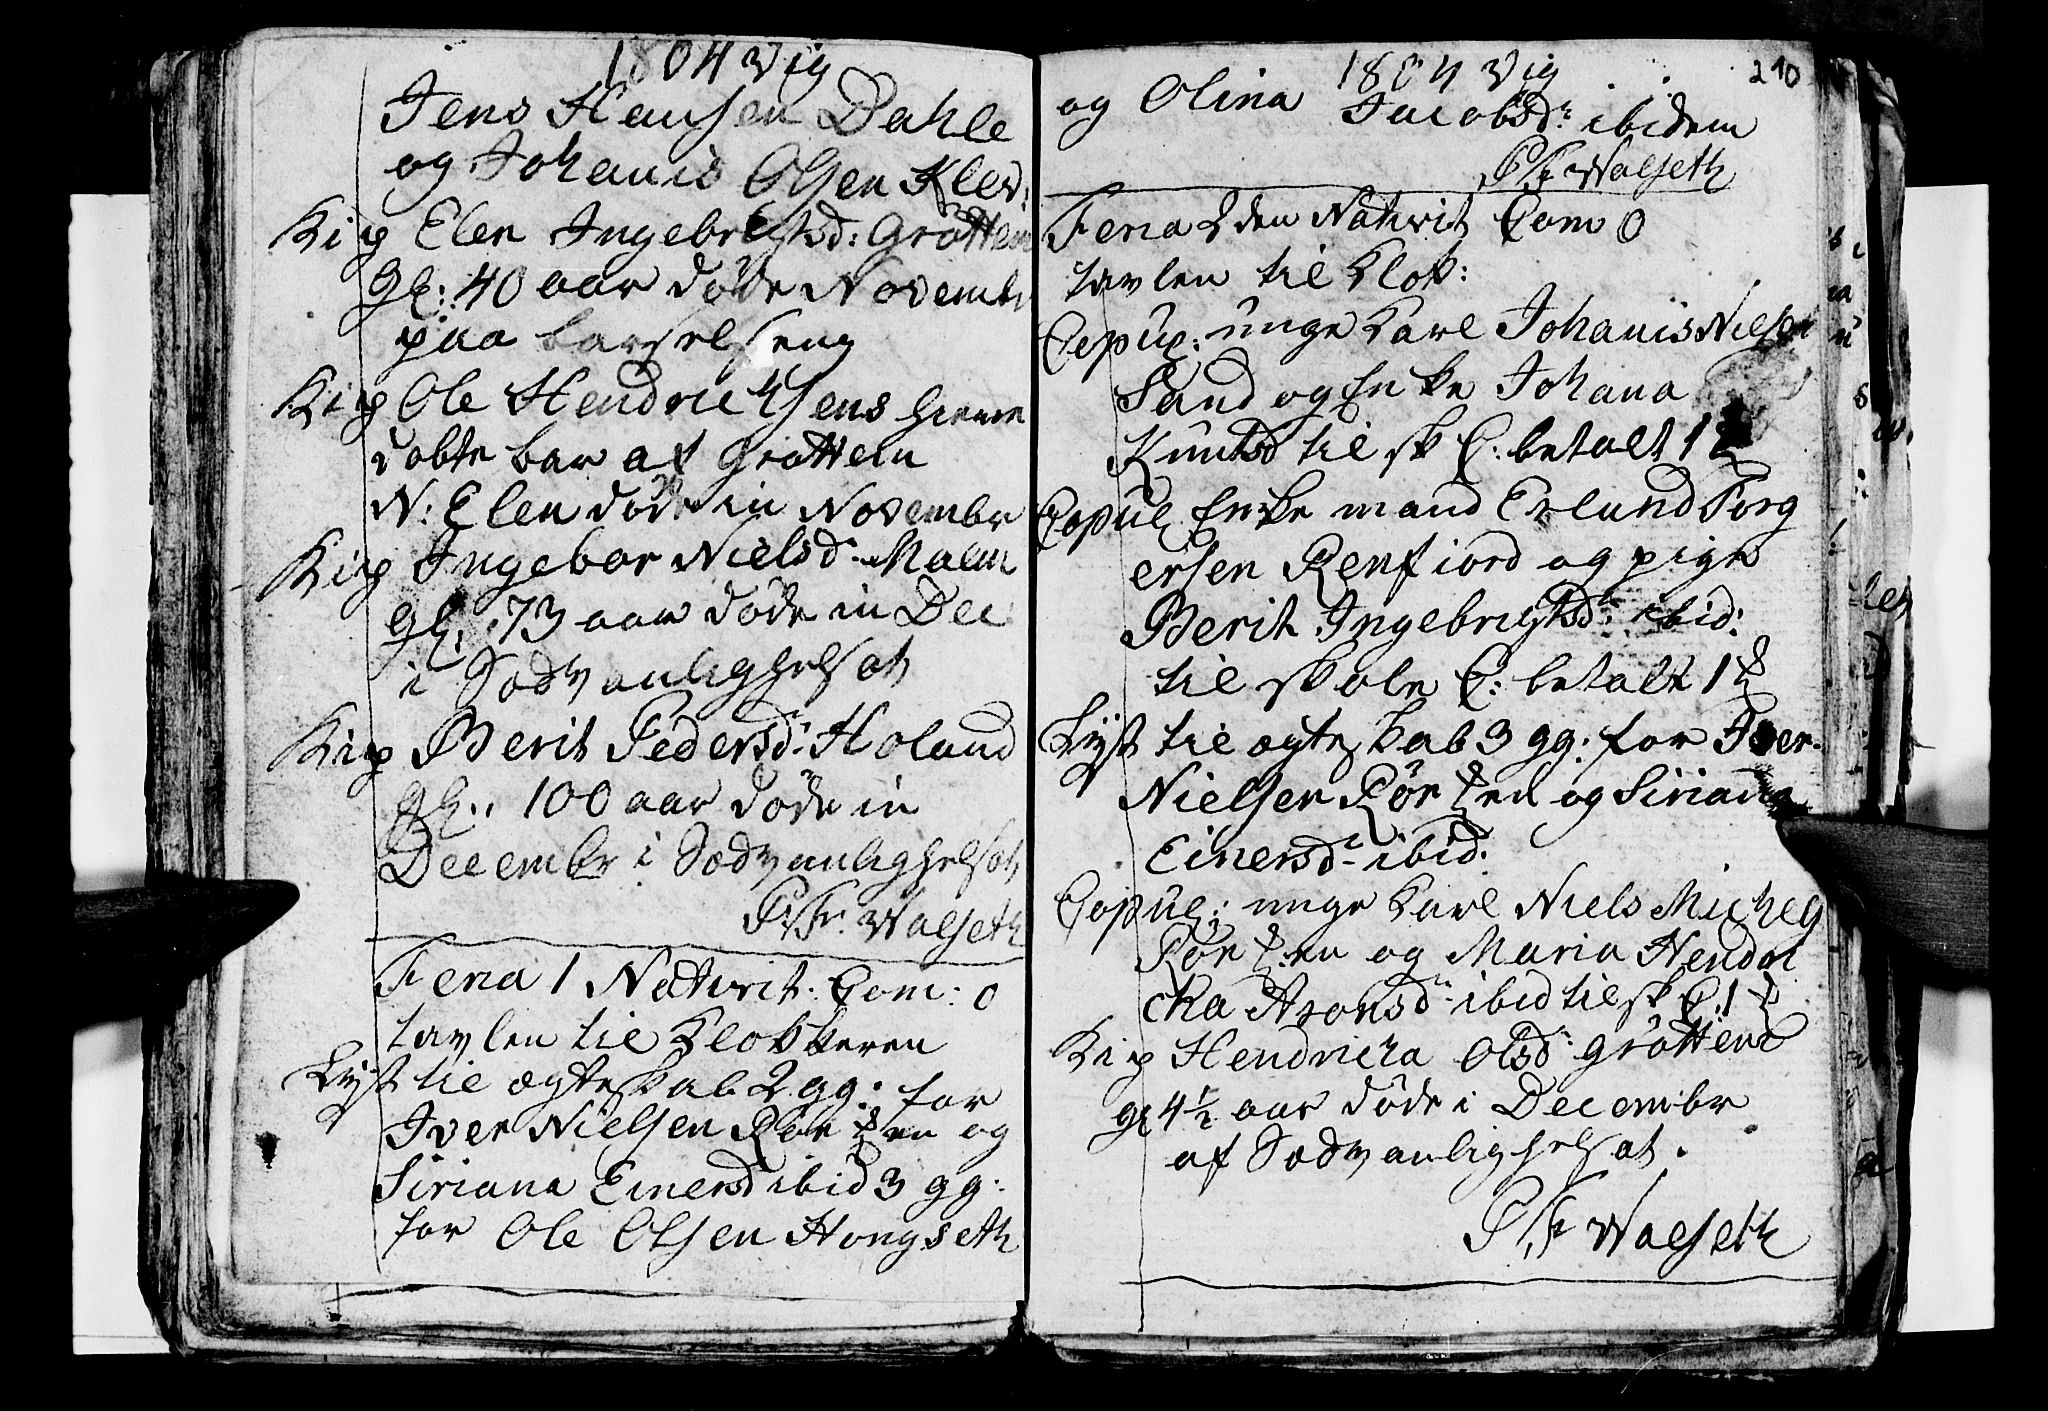 1804 Vig
Jens Hansen Dahle
og Johanis Olsen Klev:
Kip Elen Ingebrigtsd: Grøttem
gl: 40 aar døde Novembr
paa barselseng
Kip Ole Hendrichsens hieme
døbte bar af Grøttem
N: Elen døde in Novembr
Kip Ingebor Nielsd: Malm
gl. 73 aar døde in Dec
i Sædvanlighelsot
Kip Berit Pedersd: Holand
gl.. 100 aar døde in
Decembr i Sædvanlighelsot
Walseth
Feria 1 Nativit. Dom: 0
tavlen til Klokkeren
Lyst til ægteskab 2 gg: for
Iver Nielsen og
Siriana Einersd ibid 3 gg.
for Ole Olsen Hongseth
1804 Vig
210
og Olina Jacobsd: ibidem
Walseth
Feria 2den Nativit Dom 0
tavlen til Klok:
Copul: unge Karl Johanis Nielsen
Sand og Enke Johana
Knutsd til sk C: betalt 1
Copul Enkemand Erlund Torg
ersen Renfiord og pige
Berit Ingebrigtsd: ibid:
til skole C: betalt 1
Lyst til ægteskab 3 gg: for Iver
Nielsen og Siriana
Einersd: ibid:
Copul: unge Karl Niels Michels
og Maria Hendri
cka Aronsd: ibid til sk C: 1
Kip Hendricka Olsd: Grøttem
gl 4 1/2 aar døde i Decembr
af Sædvanlighelsot.
Walseth